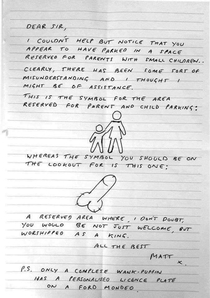 DEAR SIR,
I COULDN'T HELP BUT NOTICE THAT YOU
APPEAR TO HAVE PARKED IN A SPACE
RESERVED FOR PARENTS WITH SMALL CHILDREN.
CLEARLY, THERE HAS BEEN SOME SORT OF
MISUNDERSTANDING AND I THOUGHT I
MIGHT BE OF ASSISTANCE.
THIS IS THE SYMBOL FOR THE AREA
RESERVED FOR PARENT AND CHILD PARKING:
WHEREAS THE SYMBOL YOU SHOULD BE ON
THE LOOKOUT FOR IS THIS ONE:
A RESERVED AREA WHERE, I DON'T DOUBT,
YOU WOULD BE NOT JUST WELCOME, BUT
WORSHIPPED AS A KING.
ALL THE BEST
MATT
X
P.S. ONLY A COMPLETE WANK-PUFFIN
HAS A PERSONALISED LICENCE PLATE
ON A FORD MONDEO.